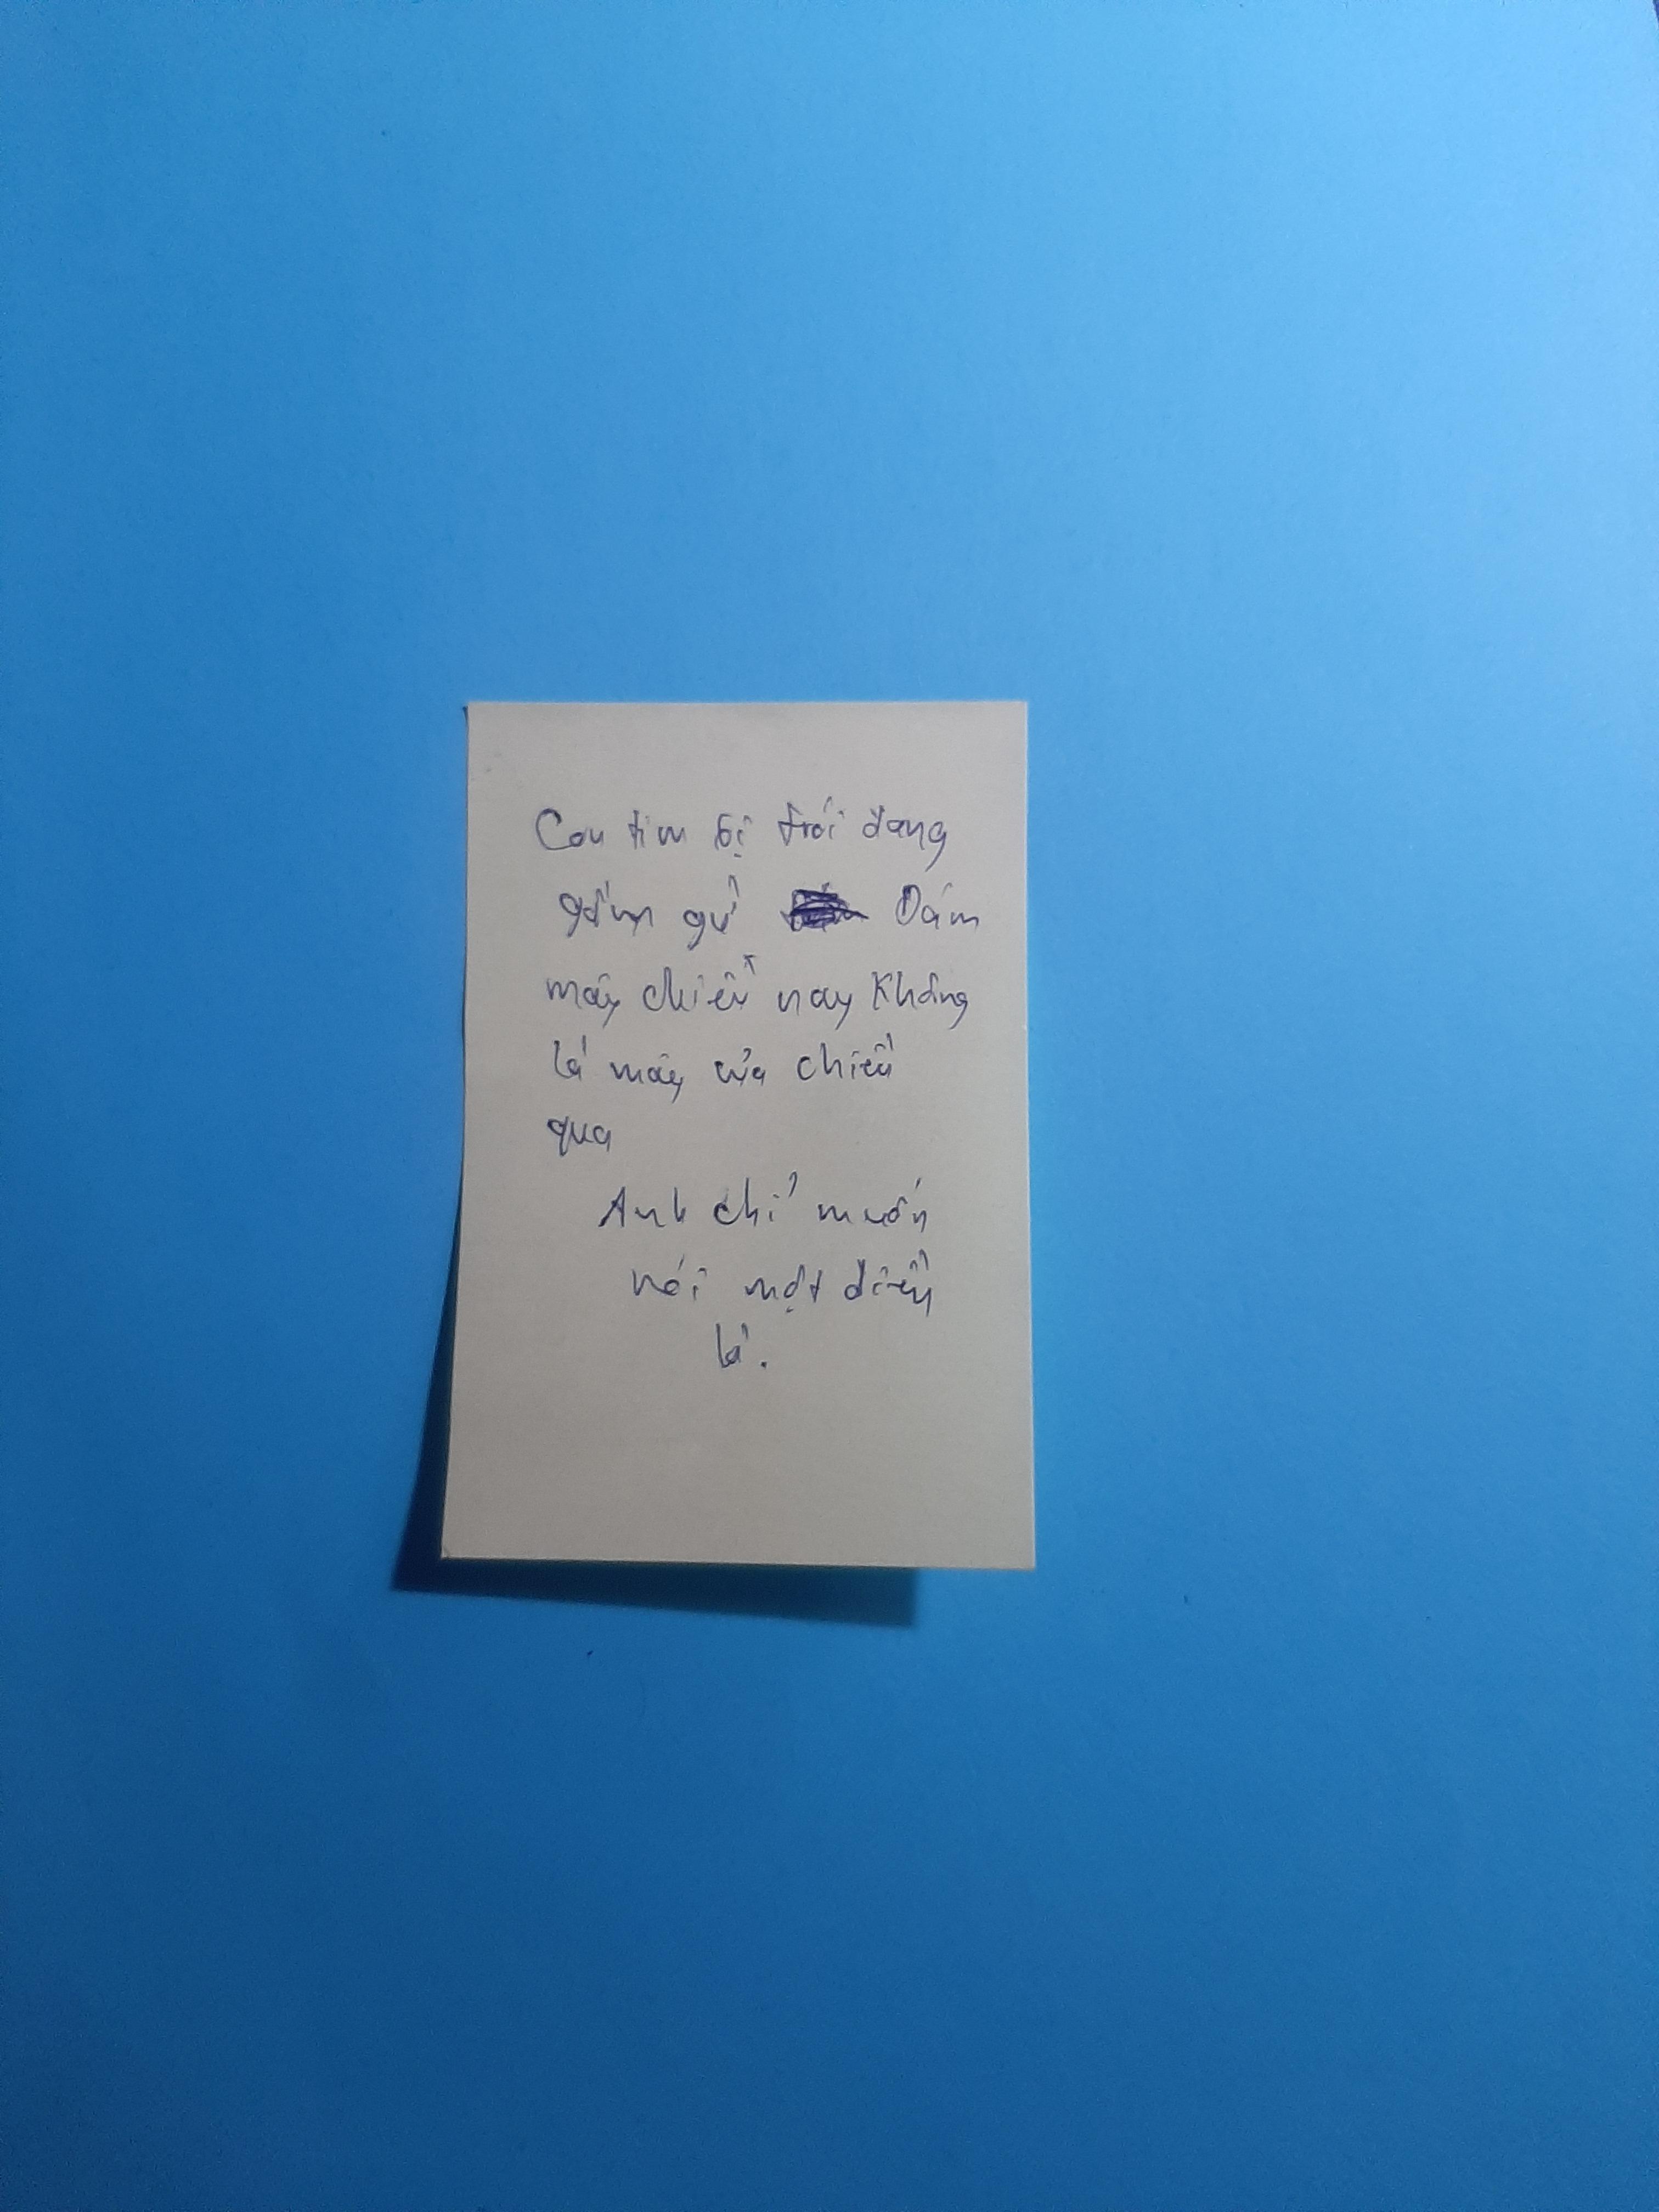 Con tim bị trói đang
gầm gừ Đám
mây chiều nay không
là mây của chiều
qua
Anh chỉ muốn
nói một điều
là.